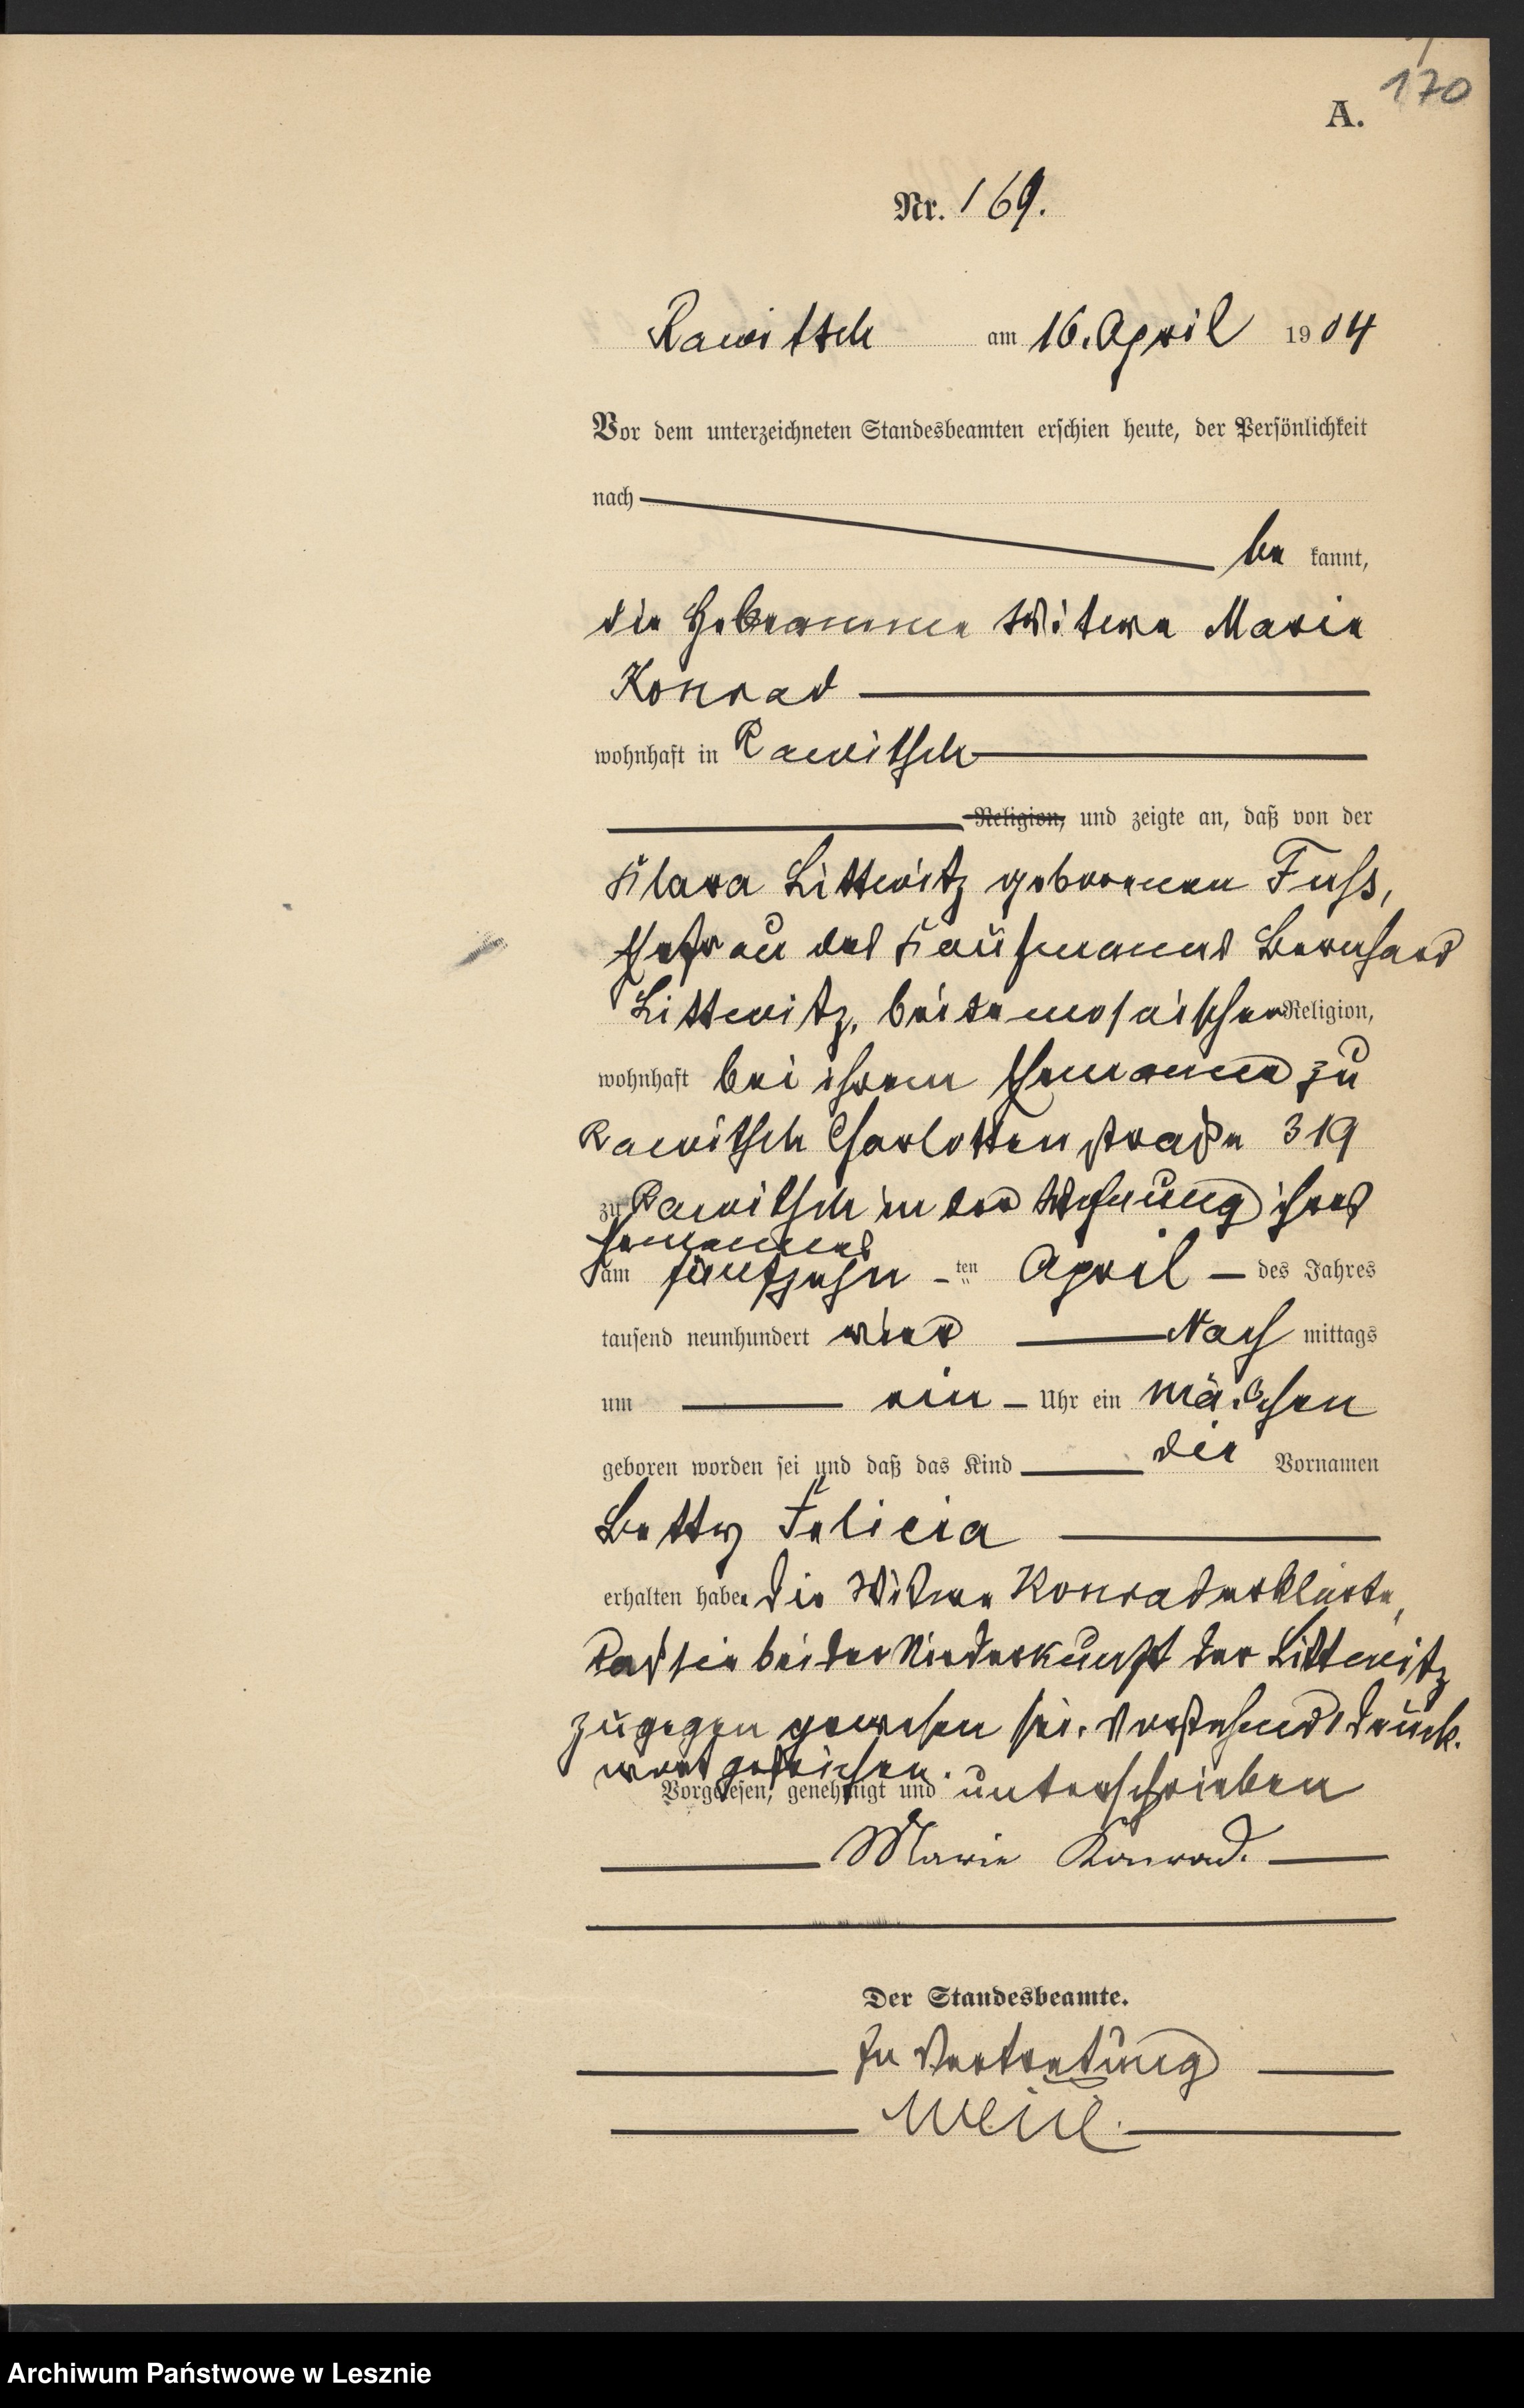 170
A.
Nr. 169.
Rawitsch am 16. April 1904
Vor dem unterzeichneten Standesbeamten erschien heute, der Persönlichkeit
nach
be kannt,
die Hebeamme Witwe Marie
Konrad
wohnhaft in Rawitsch
Religion, und zeigte an, daß von der
Klara Littwitz geborenen Fuss,
Ehefrau des Kaufmanns Bernhard
Littwitz, beide mosaischer Religion,
wohnhaft bei ihrem Ehemanne zu
Rawitsch Charlottenstraße 319
zu Rawitsch in der Wohnung ihres
Ehemannes
am fünfzehn ten April des Jahres
tausend neunhundert vier Nach mittags
um ein Uhr ein Mädchen
geboren worden sei und daß das Kind die Vornamen
Betty Felicia
erhalten habe. Die Witwe Konrad erklärte,
daß sie bei der Niederkunft der Littwitz
zugegen gewesen sei. Vorstehend 1 Druck-
wort gestrichen.
Vorgelesen, genehmigt und unterschrieben
Marie Konrad.
Der Standesbeamte.
In Vertretung
Archiwum Państwowe w Lesznie